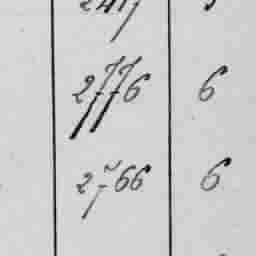 2776 6
2766 6